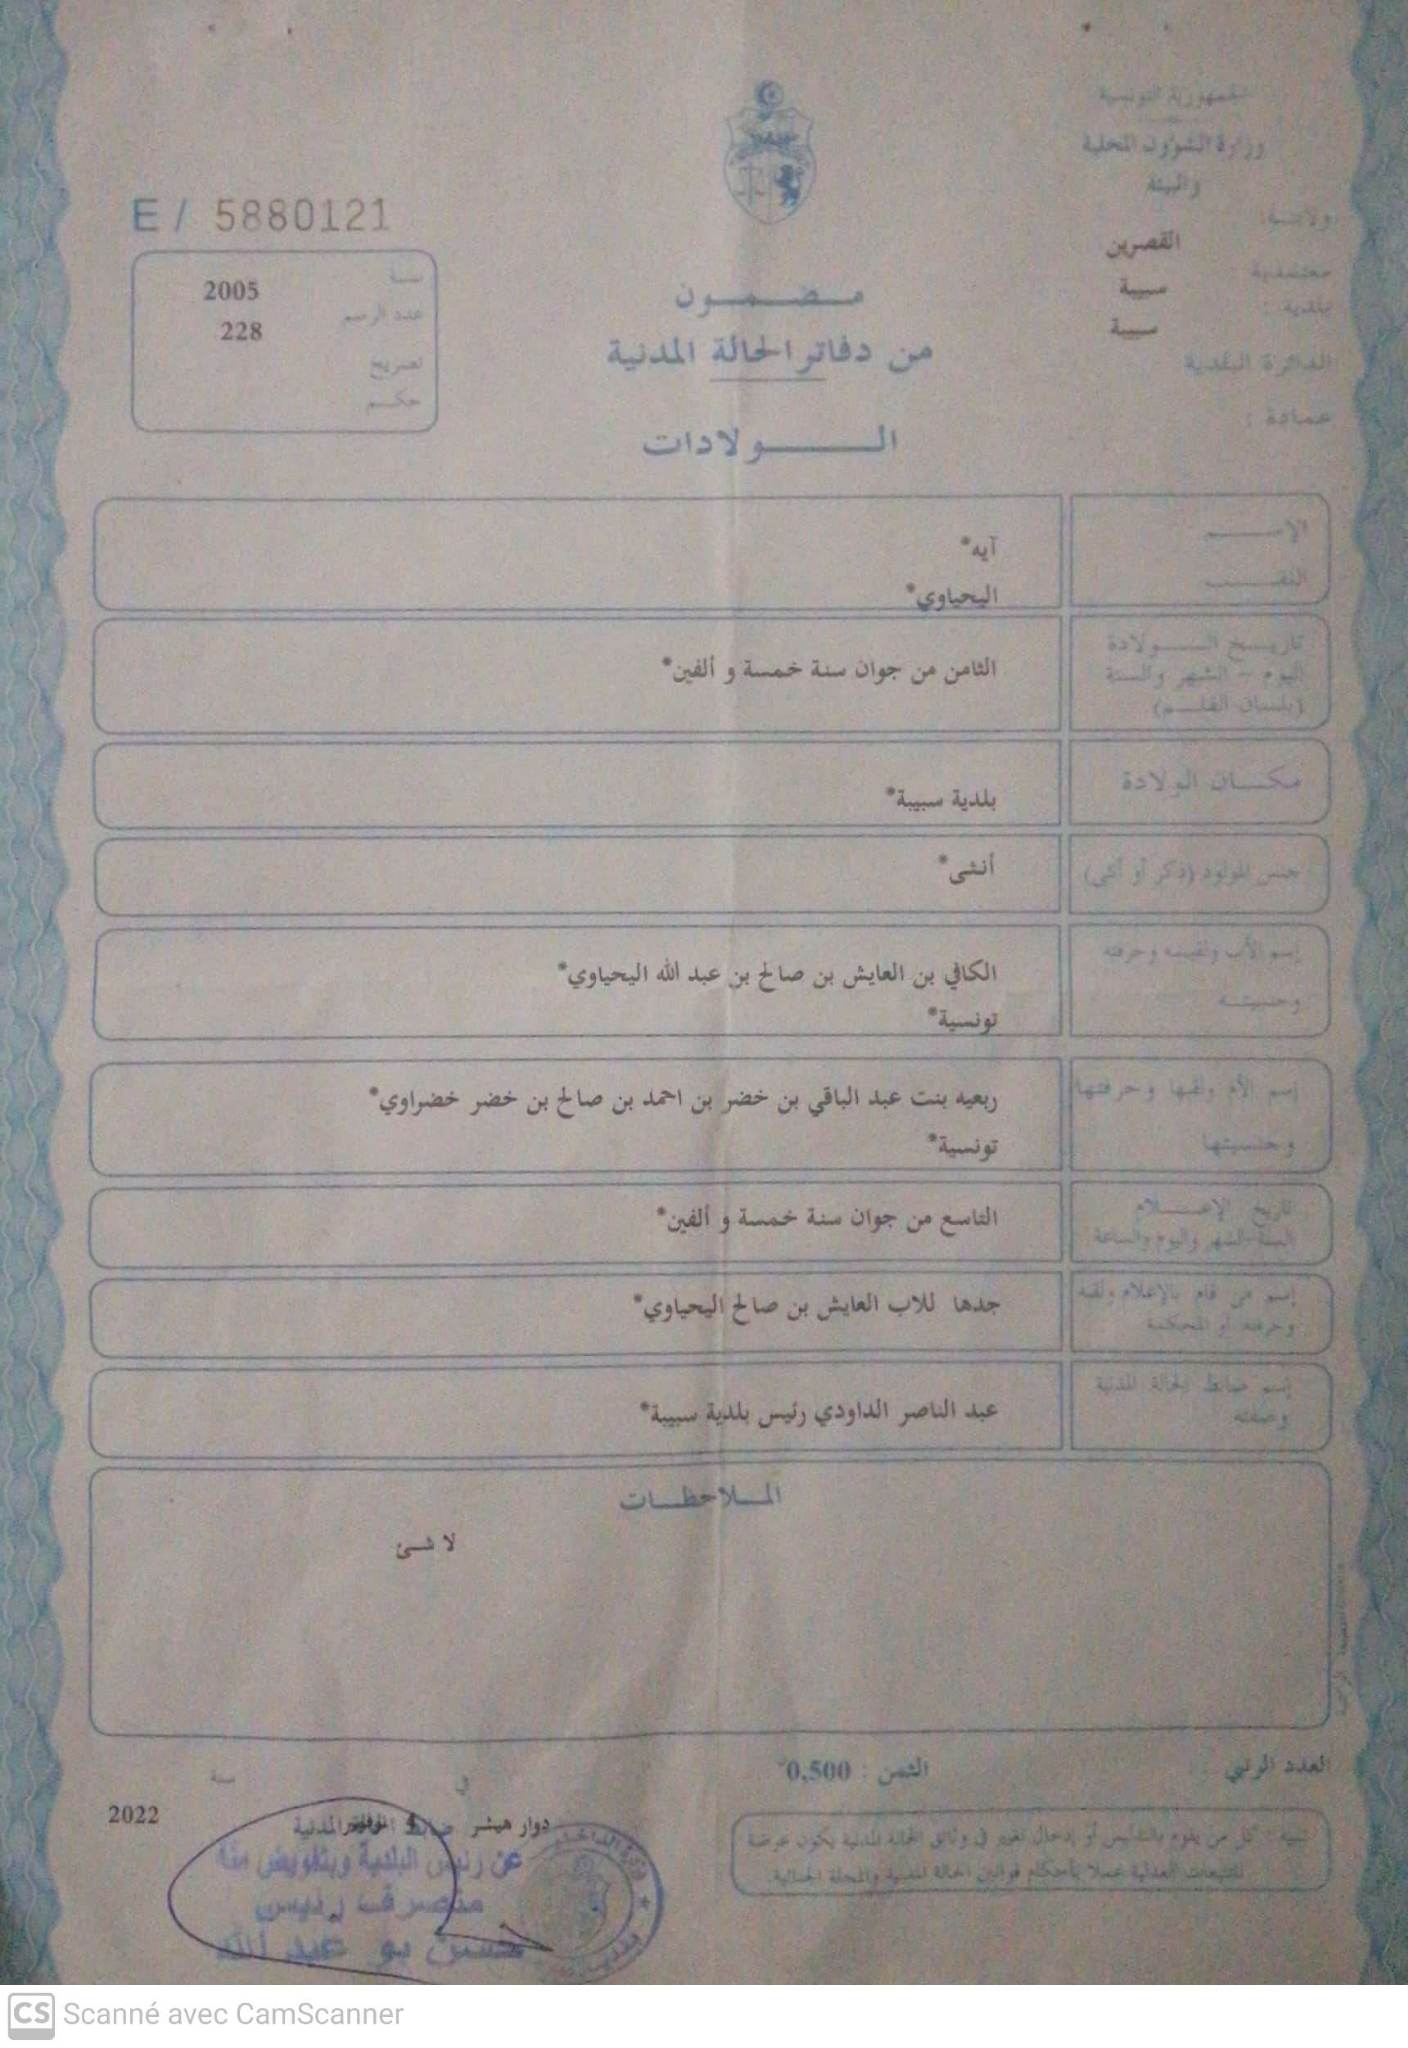 الجمهورية التونسية
وزارة الشؤون المحلية
والبيئة
ولاية:
القصرين
معتمدية
سبيبة
بلدية :
سبيبة
الدائرة البلدية
عمادة :
E / 5880121
سنة
2005
عدد الرسم
228
تصريح
حكم
مضمون
من دفاتر الحالة المدنية
الولادات
الإسم
آيه*
اللقب
اليحياوي*
تاريخ الولادة
اليوم - الشهر والسنة
(بلسان القلم)
الثامن من جوان سنة خمسة و ألفين*
مكان الولادة
بلدية سبيبة*
جنس المولود (ذكر أو أنثى)
أنثى*
إسم الأب ولقبه وحرفته
وجنسيته
الكافي بن العايش بن صالح بن عبد الله اليحياوي*
تونسية*
إسم الأم ولقبها وحرفتها
وجنسيتها
ربعيه بنت عبد الباقي بن خضر بن احمد بن صالح بن خضر خضراوي*
تونسية*
تاريخ الإعلام
السنة الشهر واليوم والساعة
التاسع من جوان سنة خمسة و ألفين*
إسم من قام بالإعلام ولقبه
وحرفته أو المحكمة
جدها للاب العايش بن صالح اليحياوي*
إسم ضابط الحالة المدنية
وصفته
عبد الناصر الداودي رئيس بلدية سبيبة*
الملاحظات
لا شئ
العدد الرتبي
الثمن : 0,500
تنبيه : كل من يقوم بالتدليس أو إدخال تغيير في وثائق الحالة المدنية يكون عرضة
للتتبعات العدلية عملا بأحكام قوانين الحالة المدنية والمجلة الجنائية.
في
سنة
دوار هيشر 4 نوفمبر
2022
ضابط الحالة المدنية
عن رئيس البلدية وبتفويض منه
متصرف رئيس
حسن بو عبد الله
CS Scanné avec CamScanner